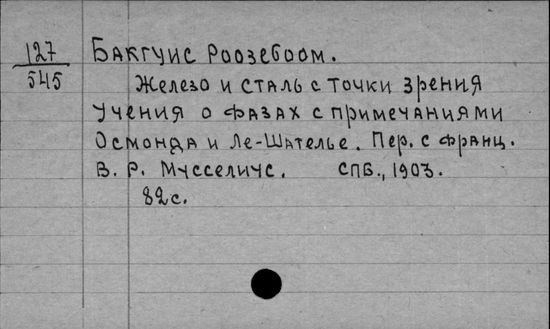 127
545
Бакгуис Роозебоом.
Железо и сталь с точки зрения
учения о фазах с примечаниями
Осмонда и Ле-Шателье. Пер. с франц.
В. Р. Мусселиус. СПБ., 1903.
82 с.